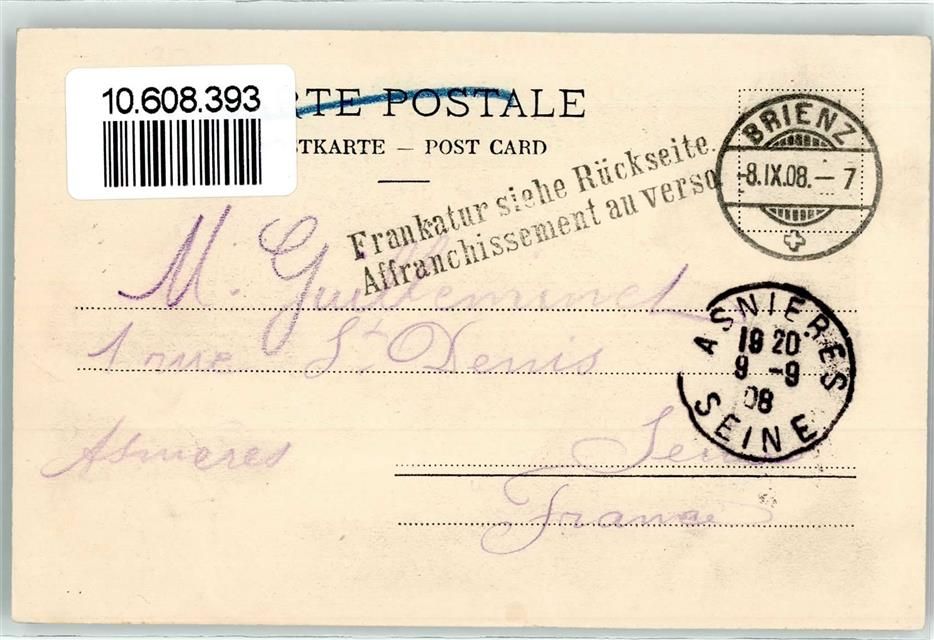 10.608.393
RTE POSTALE
STKARTE – POST CARD
Frankatur siehe Rückseite.
Affranchissement au verso.
BRIENZ
-8.IX.08.-7
M. Guilleminet
1 rue St Denis
Asnières
Seine
France
ASNIERES
19 20
9 -9
08
SEINE